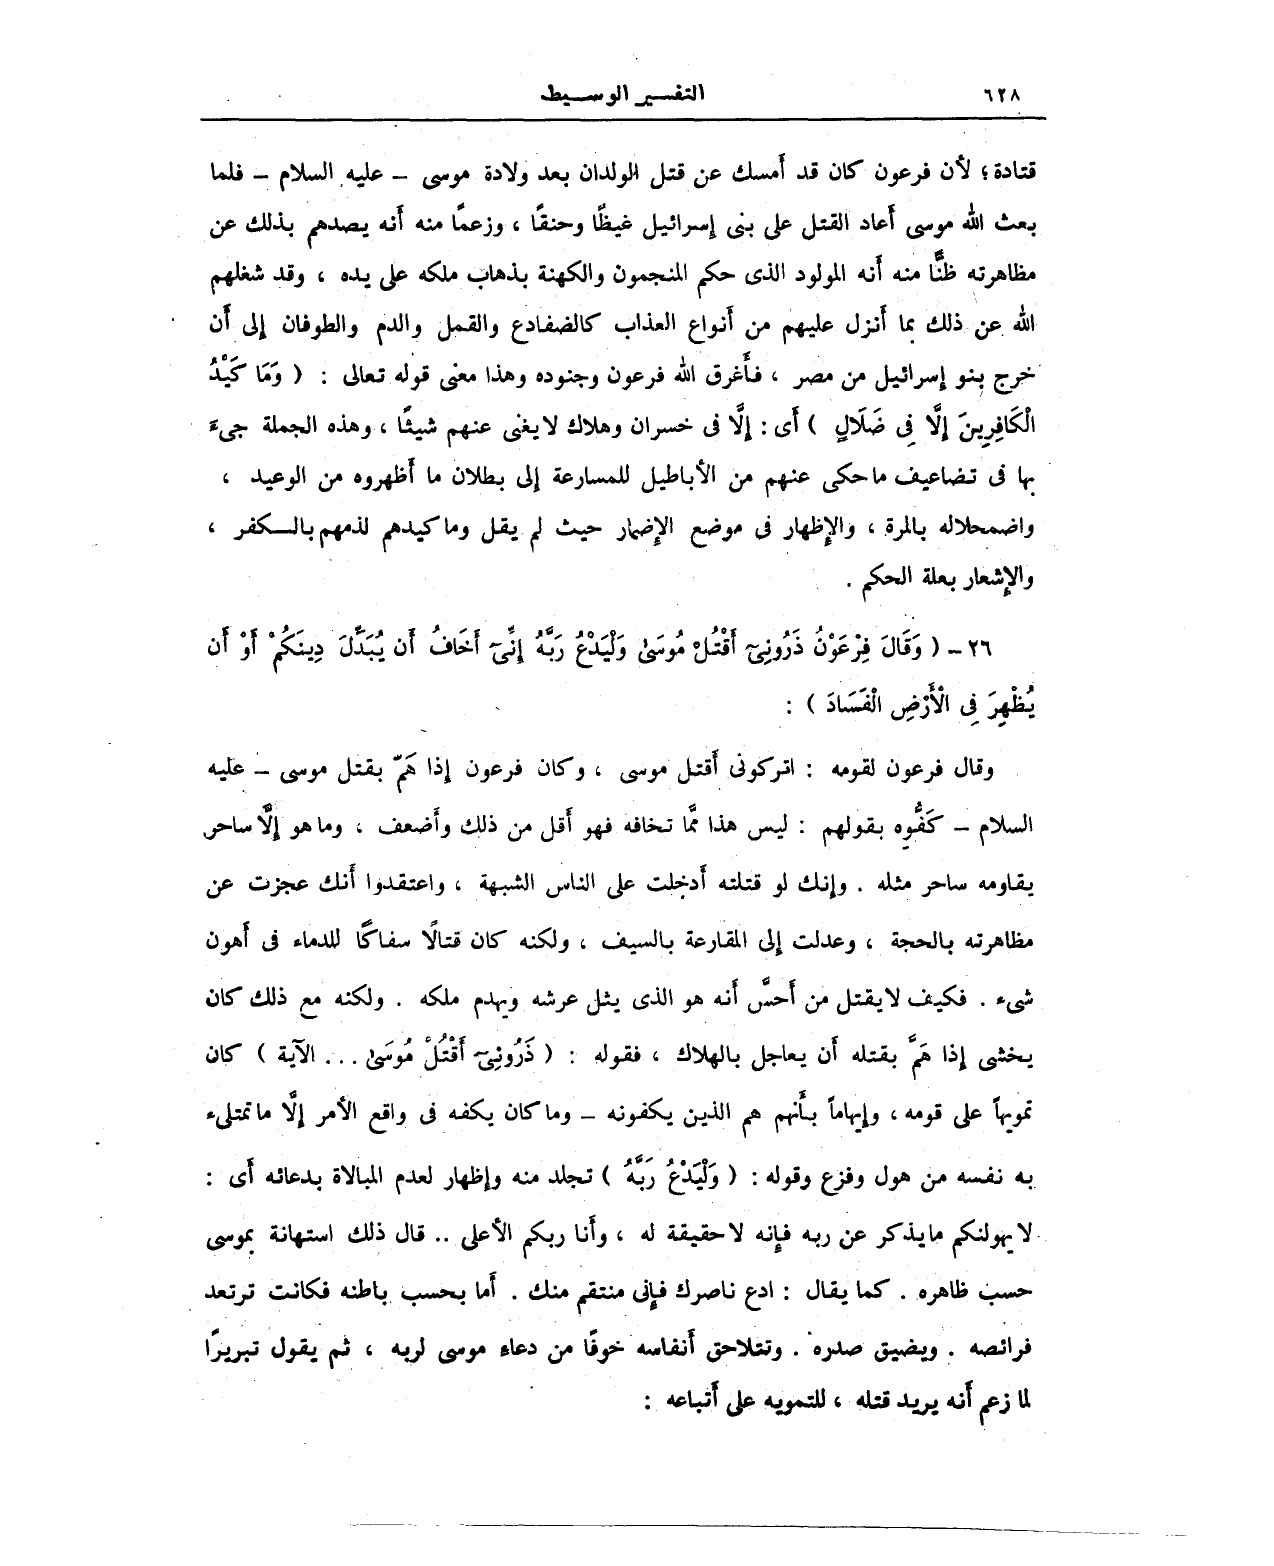 ٦٢٨ التفسير الوسيط
قتادة ؛ لأن فرعون كان قد أمسك عن قتل الولدان بعد ولادة موسى – عليه السلام – فلما
بعث الله موسى أعاد القتل على بنى إسرائيل غيظًا وحنقًا ، وزعمًا منه أنه يصدهم بذلك عن
مظاهرته ظنًّا منه أنه المولود الذى حكم المنجمون والكهنة بذهاب ملكه على يده ، وقد شغلهم
الله عن ذلك بما أنزل عليهم من أنواع العذاب كالضفادع والقمل والدم والطوفان إلى أن
خرج بنو إسرائيل من مصر ، فأغرق الله فرعون وجنوده وهذا معنى قوله تعالى : ( وَمَا كَيْدُ
الْكَافِرِينَ إِلَّا فِى ضَلَالٍ ) أى : إلَّا فى خسران وهلاك لا يغنى عنهم شيئًا ، وهذه الجملة جىء
بها فى تضاعيف ما حكى عنهم من الأباطيل للمسارعة إلى بطلان ما أظهروه من الوعيد ،
واضمحلاله بالمرة ، والإظهار فى موضع الإضمار حيث لم يقل وما كيدهم لذمهم بالكفر ،
والإشعار بعلة الحكم .
٢٦ – ( وَقَالَ فِرْعَوْنُ ذَرُونِىٓ أَقْتُلْ مُوسَىٰ وَلْيَدْعُ رَبَّهُ إِنِّىٓ أَخَافُ أَن يُبَدِّلَ دِينَكُمْ أَوْ أَن
يُظْهِرَ فِى الْأَرْضِ الْفَسَادَ ) :
وقال فرعون لقومه : اتركونى أقتل موسى ، وكان فرعون إذا هَمّ بقتل موسى – عليه
السلام – كَفُّوه بقولهم : ليس هذا ممَّا تخافه فهو أقل من ذلك وأضعف ، وما هو إلَّا ساحر
يقاومه ساحر مثله . وإنك لو قتلته أدخلت على الناس الشبهة ، واعتقدوا أنك عجزت عن
مظاهرته بالحجة ، وعدلت إلى المقارعة بالسيف ، ولكنه كان قتالًا سفاكًا للدماء فى أهون
شىء . فكيف لا يقتل من أحسَّ أنه هو الذى يثل عرشه ويهدم ملكه . ولكنه مع ذلك كان
يخشى إذا هَمَّ بقتله أن يعاجل بالهلاك ، فقوله : ( ذَرُونِىٓ أَقْتُلْ مُوسَىٰ ... الآية ) كان
تمويهاً على قومه ، وإيهاماً بأنهم هم الذين يكفونه – وما كان يكفه فى واقع الأمر إلَّا ما تمتلىء
به نفسه من هول وفزع وقوله : ( وَلْيَدْعُ رَبَّهُ ) تجلد منه وإظهار لعدم المبالاة بدعائه أى :
لا يهولنكم ما يذكر عن ربه فإنه لا حقيقة له ، وأنا ربكم الأعلى .. قال ذلك استهانة بموسى
حسب ظاهره . كما يقال : ادع ناصرك فإنى منتقم منك . أما بحسب باطنه فكانت ترتعد
فرائصه . ويضيق صدره . وتتلاحق أنفاسه خوفًا من دعاء موسى لربه ، ثم يقول تبريرًا
لما زعم أنه يريد قتله ، للتمويه على أتباعه :